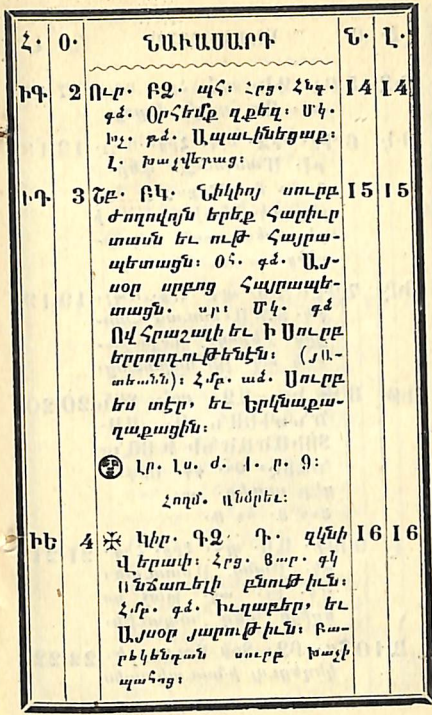 Հ․ Օ․ ՆԱՒԱՍԱՐԴ Ն․ Լ․
ԻԳ 2 Ուր․ ԲՁ․ պհ։ Հրց․ Հնգ․ 14 14
գձ․ Օրհեմք զքեզ։ Մկ․
խՀ․ թձ․ Ապաւինեցաք։
Լ․ խաչվերաց։
ԻԴ 3 Շբ․ ԲԿ․ Նիկիոյ սուրբ 15 15
Ժողովոյն երեք Հարիւր
տասն եւ ութ Հայրա-
պետացն։ ՕՀ․ գձ․ Այ-
սօր սրբոց Հայրապե-
տացն․ Մկ․ գձ
Ով Հրաշալի եւ Ի Սուրբ
երրորդութենէն։
Հմբ․ աձ․ Սուրբ
ես տէր, եւ Երկնաքա-
ղաքացին։
Լր․ Լս․ ժ․ ր․ 9։
Հողմ․ անձրեւ։
ԻԵ 4 ✠ Կիր․ ԳՁ․ Դ․ զկնի 16 16
Վերափ։ Հրց․ գկ
Անճառելի բնութիւն։
Հմբ․ գձ․ Իւղաբեր, եւ
Այսօր յարութիւն։ Բա-
րեկենդան սուրբ խաչի
պահոց։